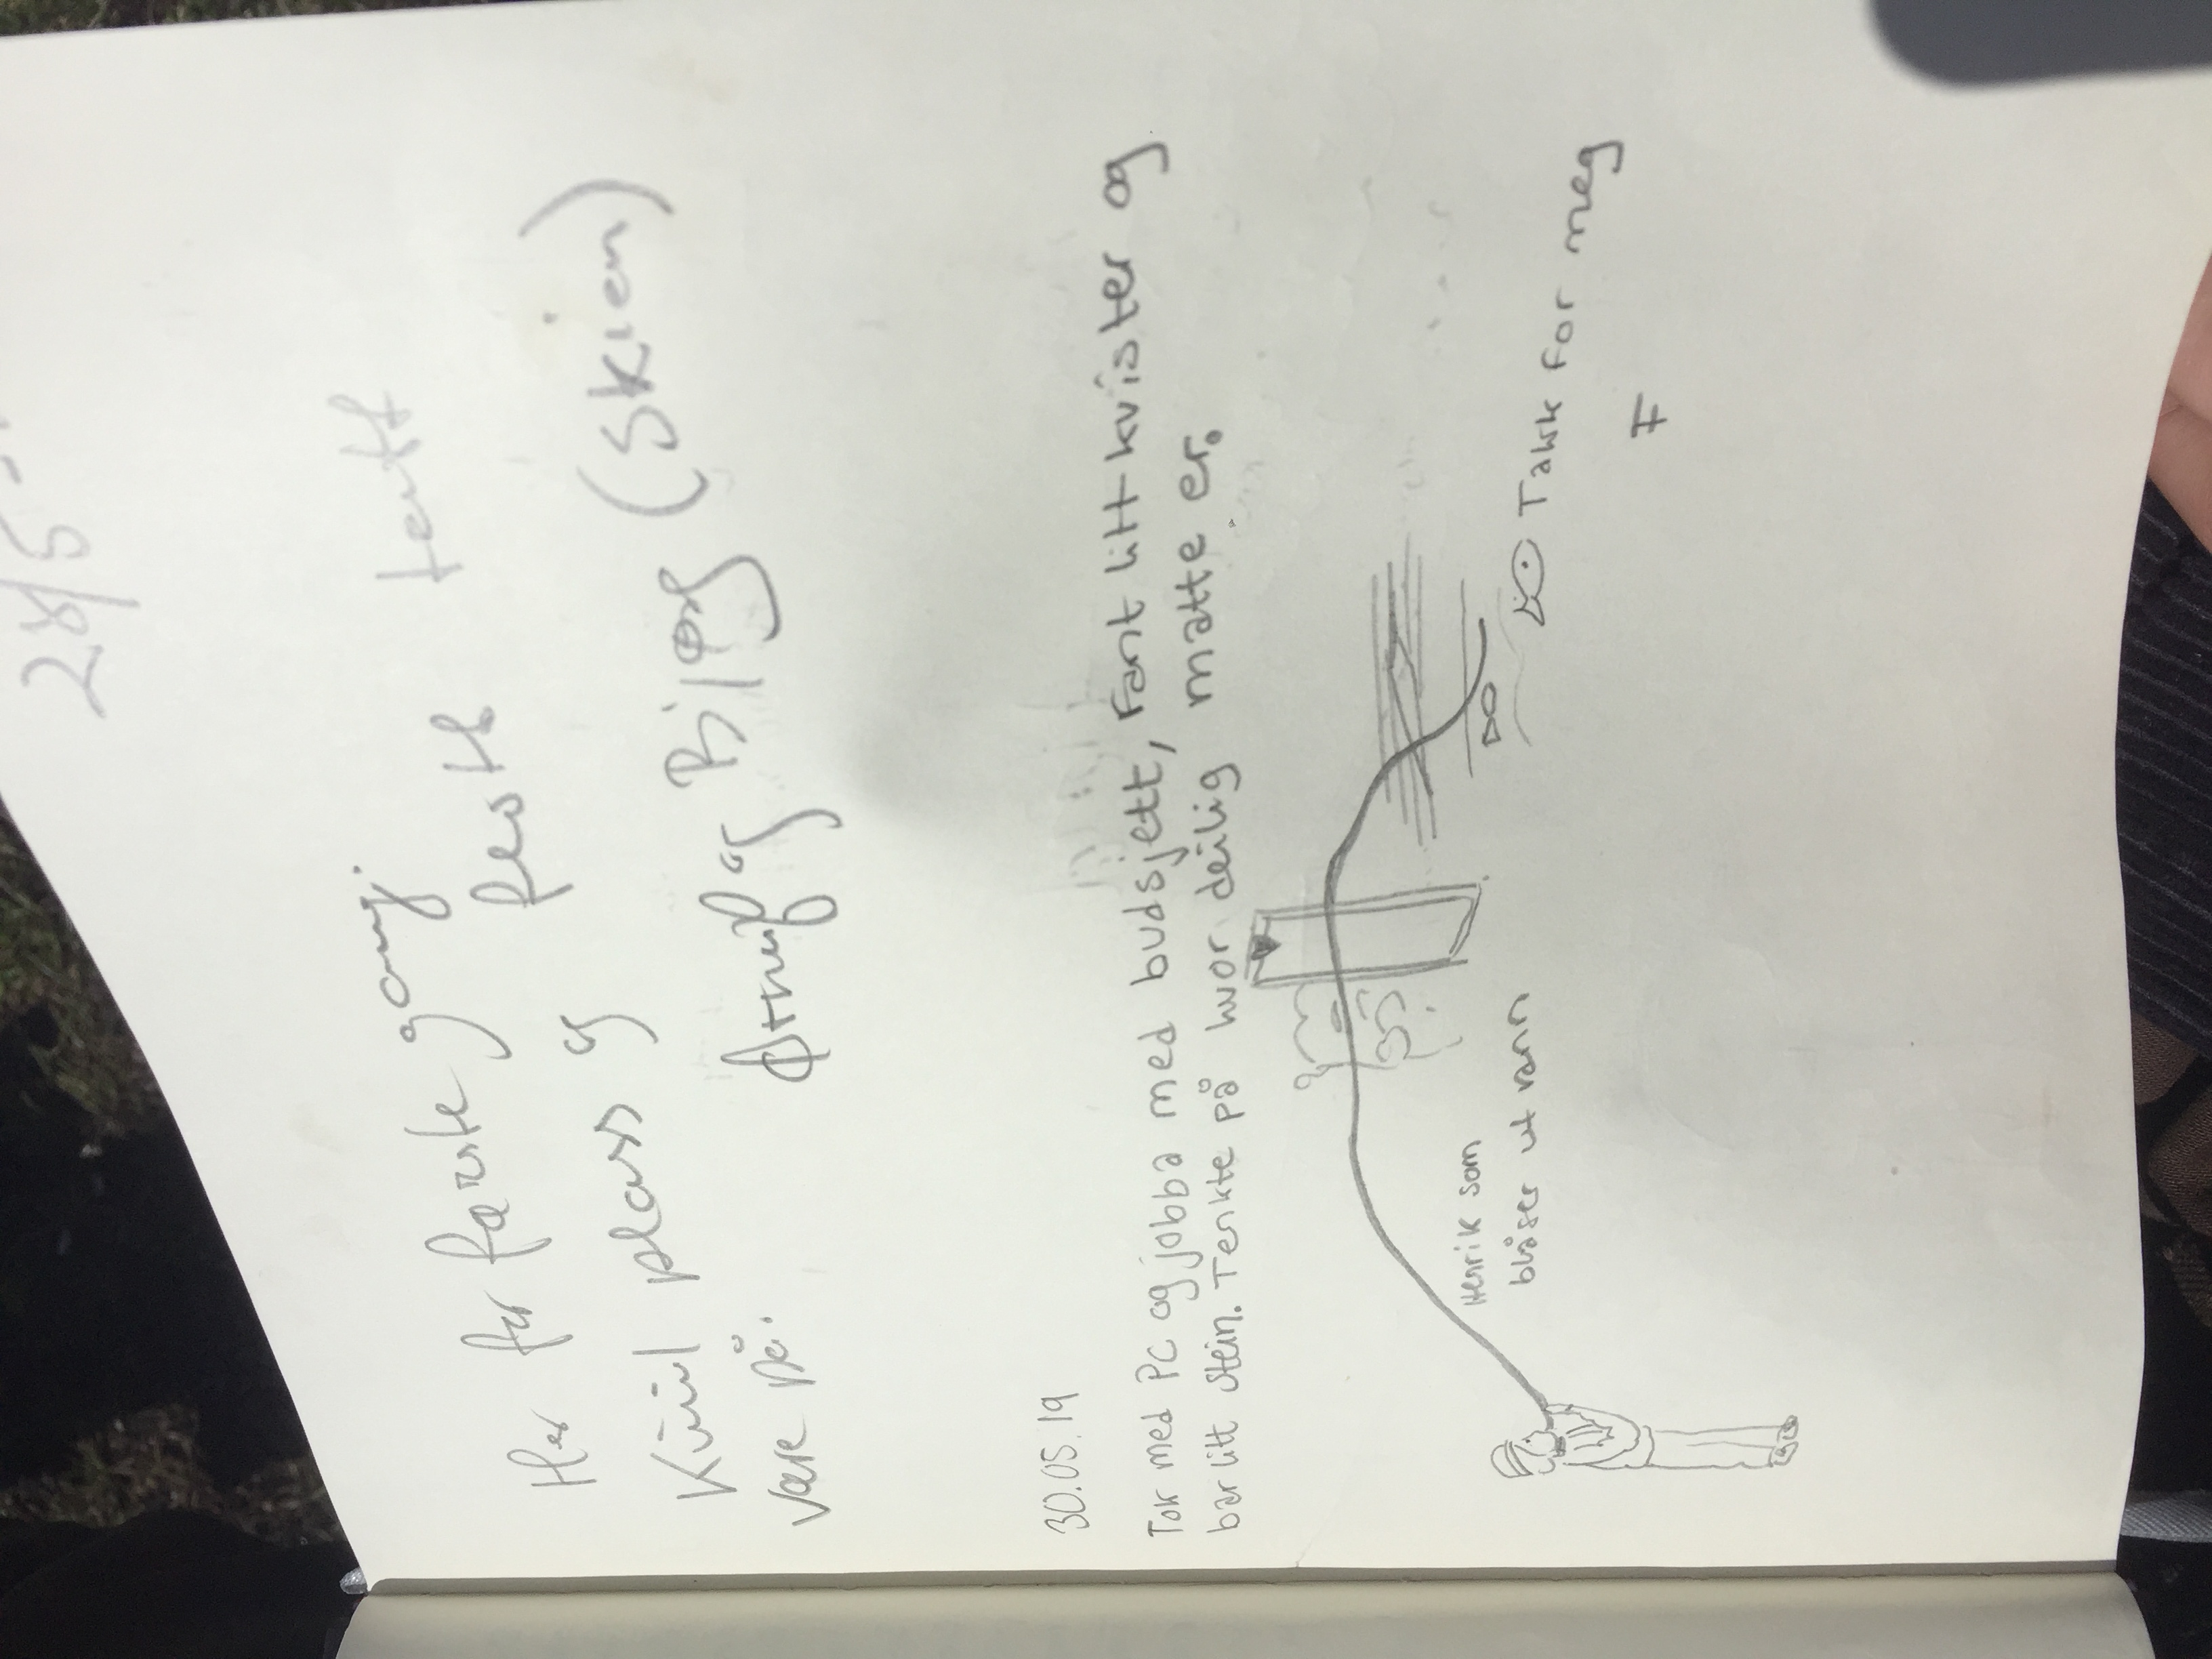 28/5
Her for første gang.
Kúúl plass og beste
være på.
og Bjørg (Skien)
30.05.19
Tok med PC og jobba med budsjett, Fant litt kvister og
bar litt stein. Tenkte på hvor deilig matte er.
Henrik som
blåser ut vann
DO
Takk for meg
F